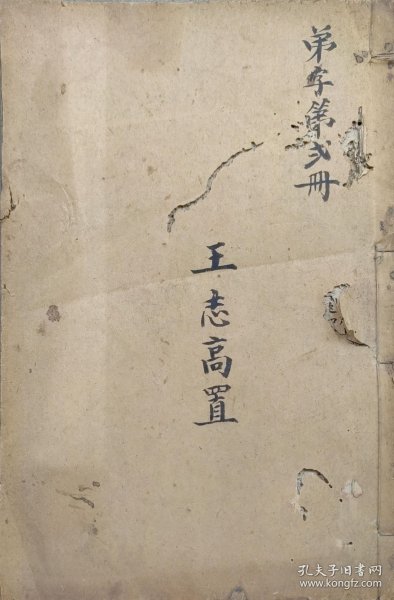 弟字第弍冊
王志高置
孔夫子旧书网
www.kongfz.com